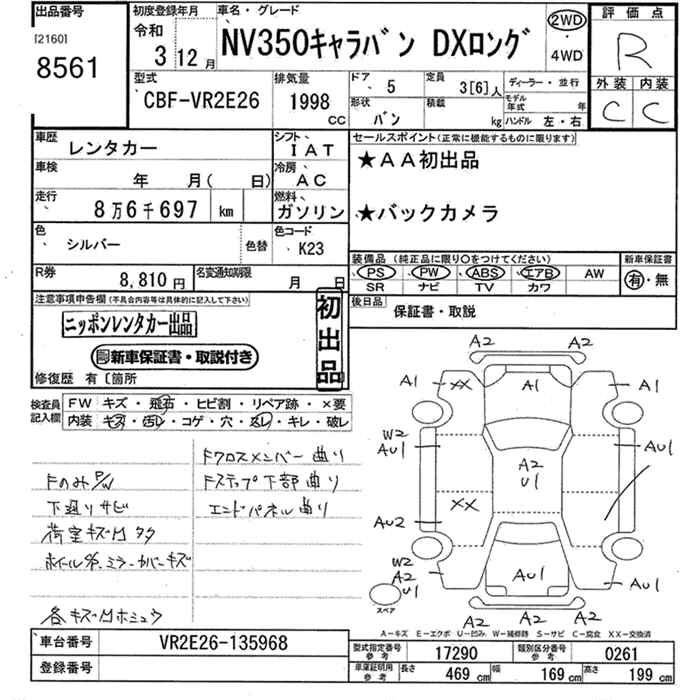 出品番号
[2160]
8561
初度登録年月
令和
3 12 月
車名・グレード
NV350キャラバン DXロング
2WD
・
4WD
評価点
R
外装 内装
C C
型式
CBF-VR2E26
排気量
1998
cc
ドア
5
定員
3[6]人
ディーラー・並行
形状
バン
積載
kg
モデル年式 年
ハンドル 左・右
車歴
レンタカー
シフト
IAT
セールスポイント(正常に機能するものに限ります)
★AA初出品
★バックカメラ
車検
年 月( 日)
冷房
AC
走行
8万6千697 km
燃料
ガソリン
色
シルバー
色替
色コード
K23
R券
8,810 円
名変通知期限
月 日
装備品(純正品に限り○をつけてください)
PS PW ABS エアB AW
SR ナビ TV カワ
新車保証書
有・無
後日品
保証書・取説
注意事項申告欄(不具合内容等は具体的に記入して下さい)
ニッポンレンタカー出品
新車保証書・取説付き
初出品
修復歴 有〔箇所
検査員記入欄
FW キズ・飛石・ヒビ割・リペア跡・×要
内装 キズ・汚レ・コゲ・穴・スレ・キレ・破レ
Fクロスメンバー曲り
FのみP/W
Fステップ下部曲り
下廻りサビ
エンドパネル曲り
荷室キズ凹タク
ホイールキズ、ミラーカバーキズ
各キズ凹ホミュウ
A2 A2
A1 XX A1 A1
W2
AU1 AU1
A2
U1
XX
AU2
W2
A2
U1
AU1
スペア
A2 A2
A-キズ E-エクボ U-凹み W-補修跡 S-サビ C-腐食 XX-交換済
車台番号
VR2E26-135968
登録番号
型式指定番号
参考
17290
類別区分番号
参考
0261
車庫証明用
参考
長さ 469 cm 幅 169 cm 高さ 199 cm